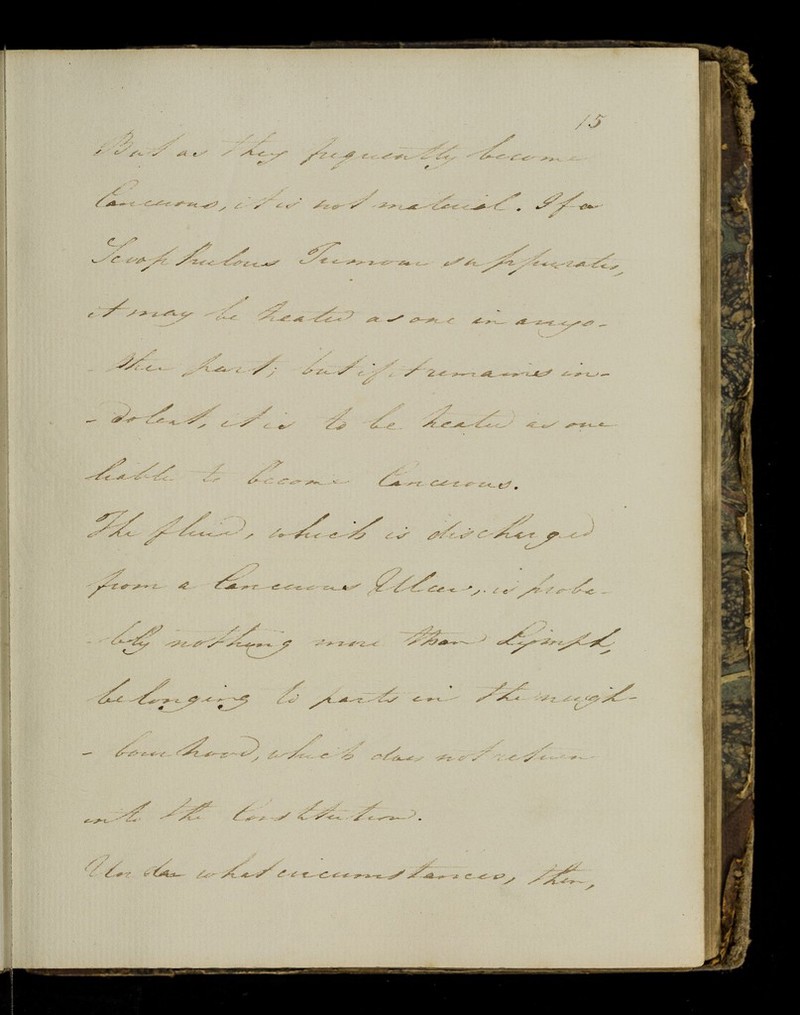 15
But as they frequently become
Cancerous, it is not material. If a
Scrophulous Tumour suppurates,
it may be treated as one in any o-
ther part; but if it remaines in-
- dolent, it is to be treated as one
liable to become Cancerous.
The fluid, which is discharged
from a Cancerous Ulcer, is proba-
- bly nothing more than Lymph,
belonging to parts in the neigh-
- bourhood, which does not return
into the Constitution.
Under what circumstances, then,